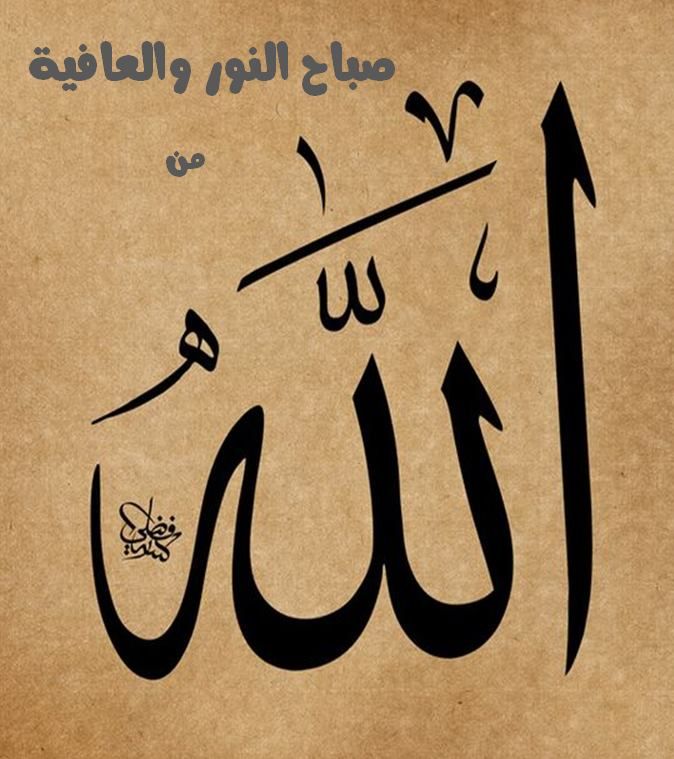 صباح النور والعافية
من
الله